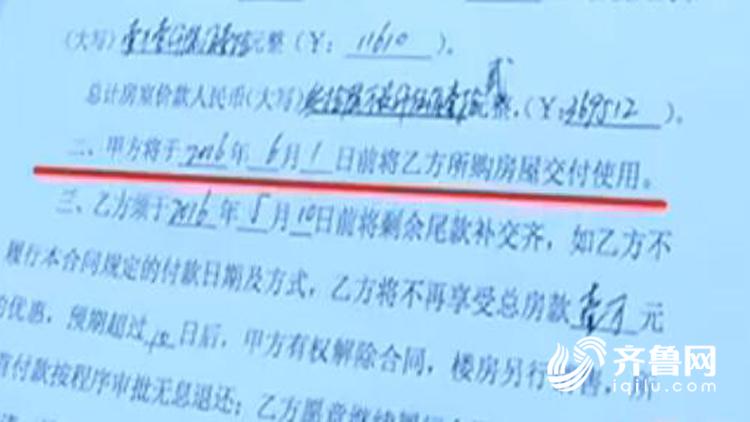 (大写)元整(Y: 11610 )。
贰
总计房室价款人民币(大写)元整,(Y: 369512 )
二、甲方将于2016年6月1日前将乙方所购房屋交付使用。
三、乙方须于2016年5月10日前将剩余尾款补交齐,如乙方不
履行本合同规定的付款日期及方式,乙方将不再享受总房款壹万元
的优惠,预期超过10日后,甲方有权解除合同,楼房另行销售,所
有付款按程序审批无息退还;乙方愿意继续履行
齐鲁网
iqilu.com